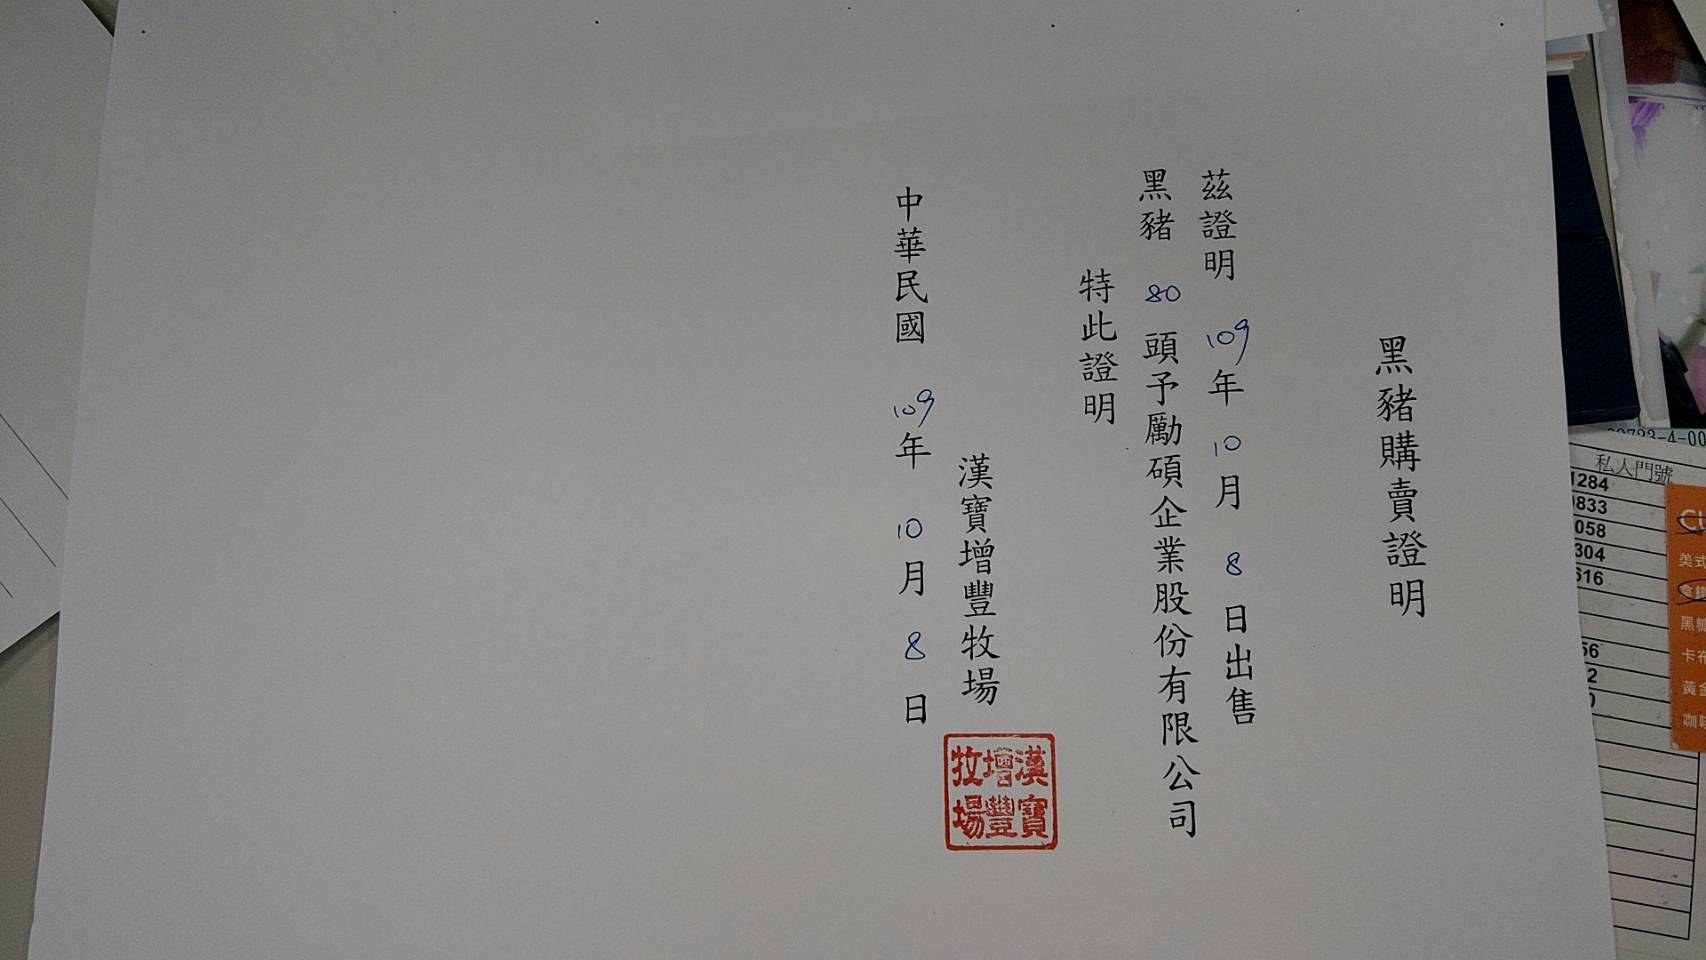 黑豬購賣證明
茲證明 109年 10月 8日出售
黑豬 80 頭予勵碩企業股份有限公司
特此證明
漢寶增豐牧場
漢寶
增豐
牧場
中華民國 109年 10月 8日
私人門號
1284
833
058
304
616
56
2
0
美式
黑糖
卡布
黃金
咖啡